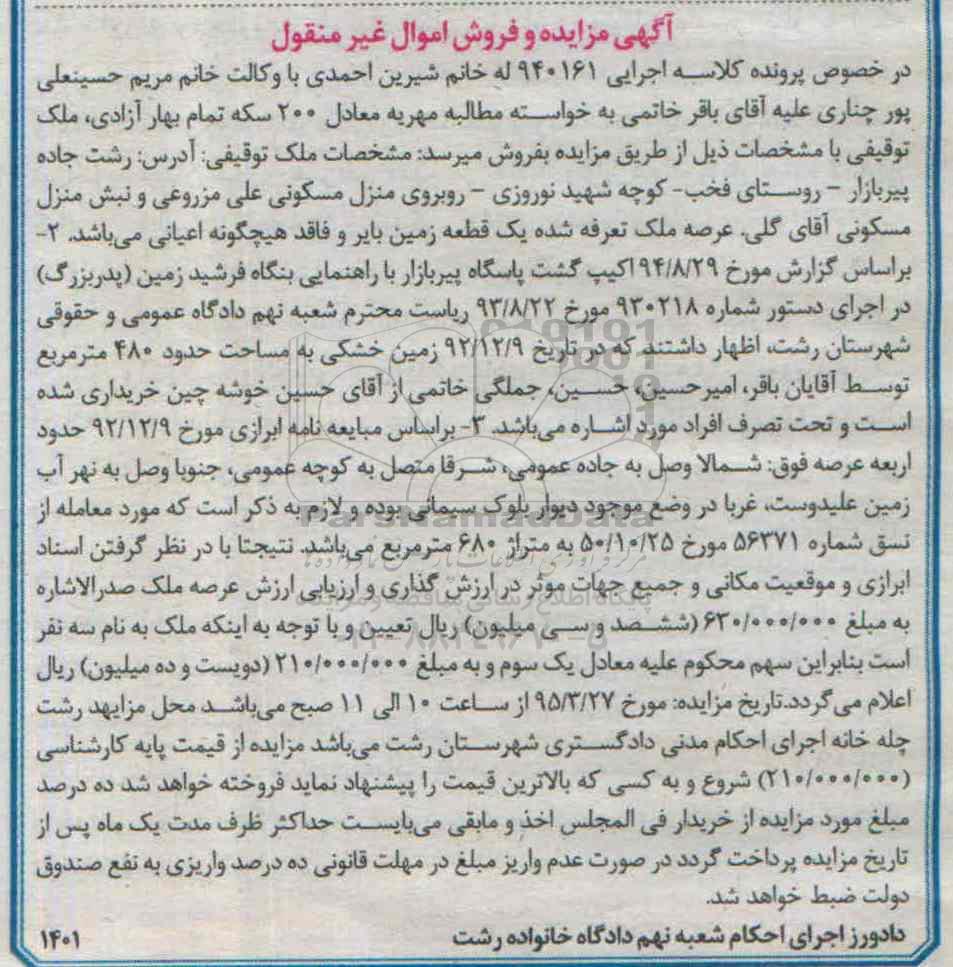 آگهی مزایده و فروش اموال غیر منقول
در خصوص پرونده کلاسه اجرایی ۹۴۰۱۶۱ له خانم شیرین احمدی با وکالت خانم مریم حسینعلی
پور چناری علیه آقای باقر خاتمی به خواسته مطالبه مهریه معادل ۲۰۰ سکه تمام بهار آزادی، ملک
توقیفی با مشخصات ذیل از طریق مزایده بفروش میرسد: مشخصات ملک توقیفی: آدرس: رشت جاده
پیربازار – روستای فخب- کوچه شهید نوروزی – روبروی منزل مسکونی علی مزروعی و نبش منزل
مسکونی آقای گلی. عرصه ملک تعرفه شده یک قطعه زمین بایر و فاقد هیچگونه اعیانی می‌باشد. ۲-
براساس گزارش مورخ ۹۴/۸/۲۹ اکیپ گشت پاسگاه پیربازار با راهنمایی بنگاه فرشید زمین (پدربزرگ)
در اجرای دستور شماره ۹۳۰۲۱۸ مورخ ۹۳/۸/۲۲ ریاست محترم شعبه نهم دادگاه عمومی و حقوقی
شهرستان رشت، اظهار داشتند که در تاریخ ۹۲/۱۲/۹ زمین خشکی به مساحت حدود ۴۸۰ مترمربع
توسط آقایان باقر، امیرحسین، حسین، جملگی خاتمی از آقای حسین خوشه چین خریداری شده
است و تحت تصرف افراد مورد اشاره می‌باشد. ۳- براساس مبایعه نامه ابرازی مورخ ۹۲/۱۲/۹ حدود
اربعه عرصه فوق: شمالا وصل به جاده عمومی، شرقا متصل به کوچه عمومی، جنوبا وصل به نهر آب
زمین علیدوست، غربا در وضع موجود دیوار بلوک سیمانی بوده و لازم به ذکر است که مورد معامله از
نسق شماره ۵۶۳۷۱ مورخ ۵۰/۱۰/۲۵ به متراژ ۶۸۰ مترمربع می‌باشد. نتیجتا با در نظر گرفتن اسناد
ابرازی و موقعیت مکانی و جمیع جهات موثر در ارزش گذاری و ارزیابی ارزش عرصه ملک صدرالاشاره
به مبلغ ۶۳۰/۰۰۰/۰۰۰ (ششصد و سی میلیون) ریال تعیین و با توجه به اینکه ملک به نام سه نفر
است بنابراین سهم محکوم علیه معادل یک سوم و به مبلغ ۲۱۰/۰۰۰/۰۰۰ (دویست و ده میلیون) ریال
اعلام می گردد.تاریخ مزایده: مورخ ۹۵/۳/۲۷ از ساعت ۱۰ الی ۱۱ صبح می‌باشد محل مزایهد رشت
چله خانه اجرای احکام مدنی دادگستری شهرستان رشت می‌باشد مزایده از قیمت پایه کارشناسی
(۲۱۰/۰۰۰/۰۰۰) شروع و به کسی که بالاترین قیمت را پیشنهاد نماید فروخته خواهد شد ده درصد
مبلغ مورد مزایده از خریدار فی المجلس اخذ و مابقی می‌بایست حداکثر ظرف مدت یک ماه پس از
تاریخ مزایده پرداخت گردد در صورت عدم واریز مبلغ در مهلت قانونی ده درصد واریزی به نفع صندوق
دولت ضبط خواهد شد.
دادورز اجرای احکام شعبه نهم دادگاه خانواده رشت ۱۴۰۱
ParsNamadData